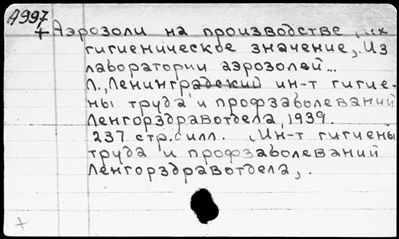 А997
Аэрозоли на производстве, их
гигиеническое значение, Из
лаборатории аэрозолей...
Л., Ленинградский ин-т гигие-
ны труда и профзаболеваний
Ленгорздравотдела, 1939.
237 стр. с илл. (Ин-т гигиены
труда и профзаболеваний
Ленгорздравотдела).